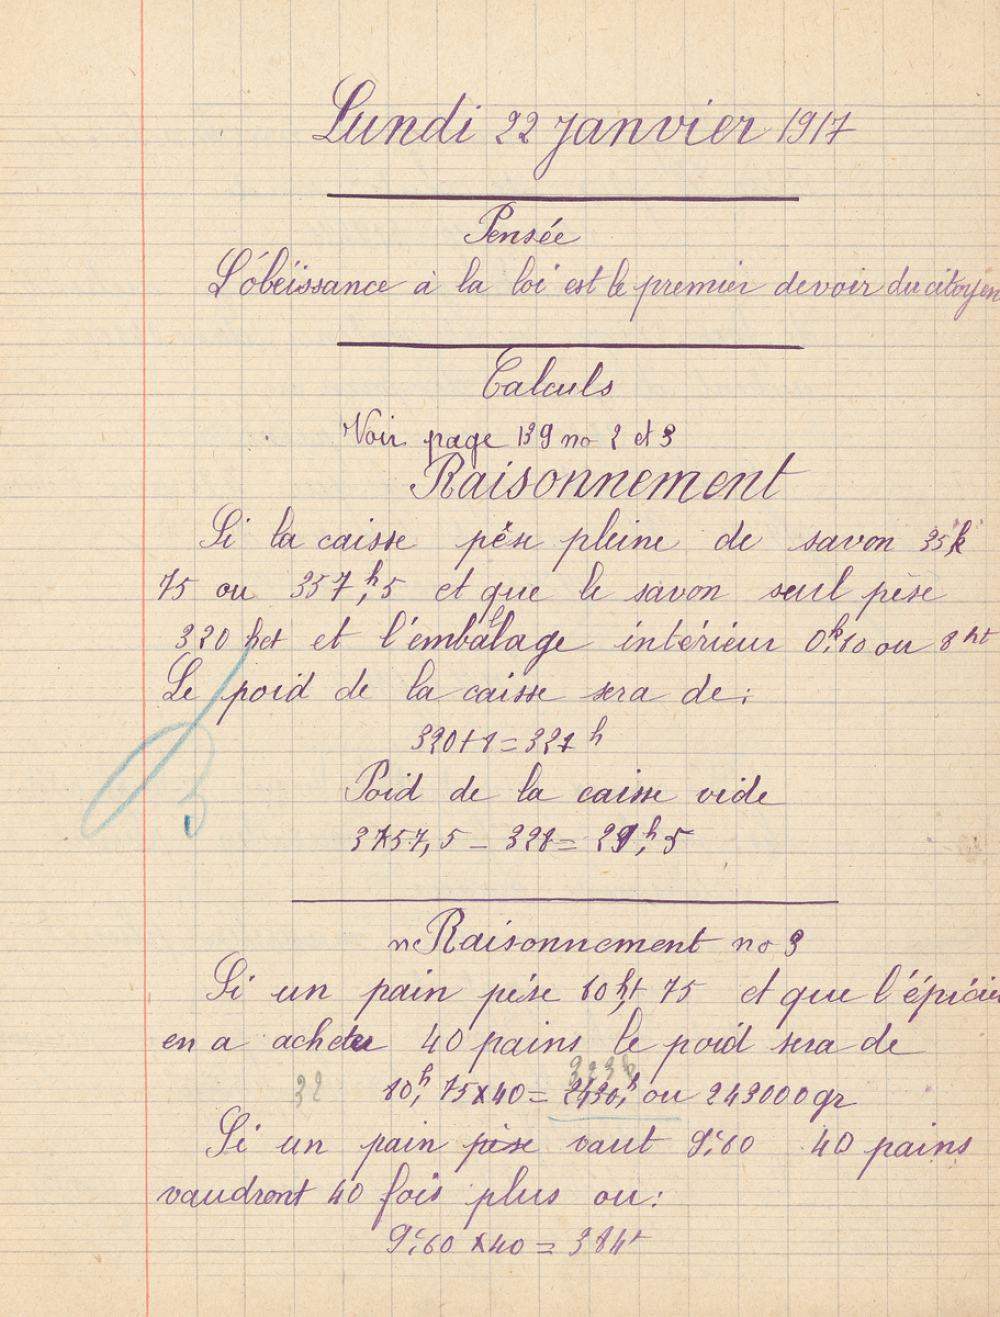 Lundi 22 janvier 1917
Pensée
L'obéissance à la loi est le premier devoir du citoyen
Calculs
Voir page 139 no 2 et 3
Raisonnement
Si la caisse pèse pleine de savon 35k
75 ou 357,h5 et que le savon seul pèse
320 hct et l'emballage intérieur 0k,80 ou 8 ht
Le poid de la caisse sera de:
320+8=328 h
Poid de la caisse vide
357,5 - 328 = 29,h5
Raisonnement no 3
Si un pain pèse 80ht,75 et que l'épicier
en a acheter 40 pains le poid sera de
32
80h,75x40=2430,h ou 243000gr
Si un pain pèse vaut 9f,60 40 pains
vaudront 40 fois plus ou:
9f,60 x40 = 384f